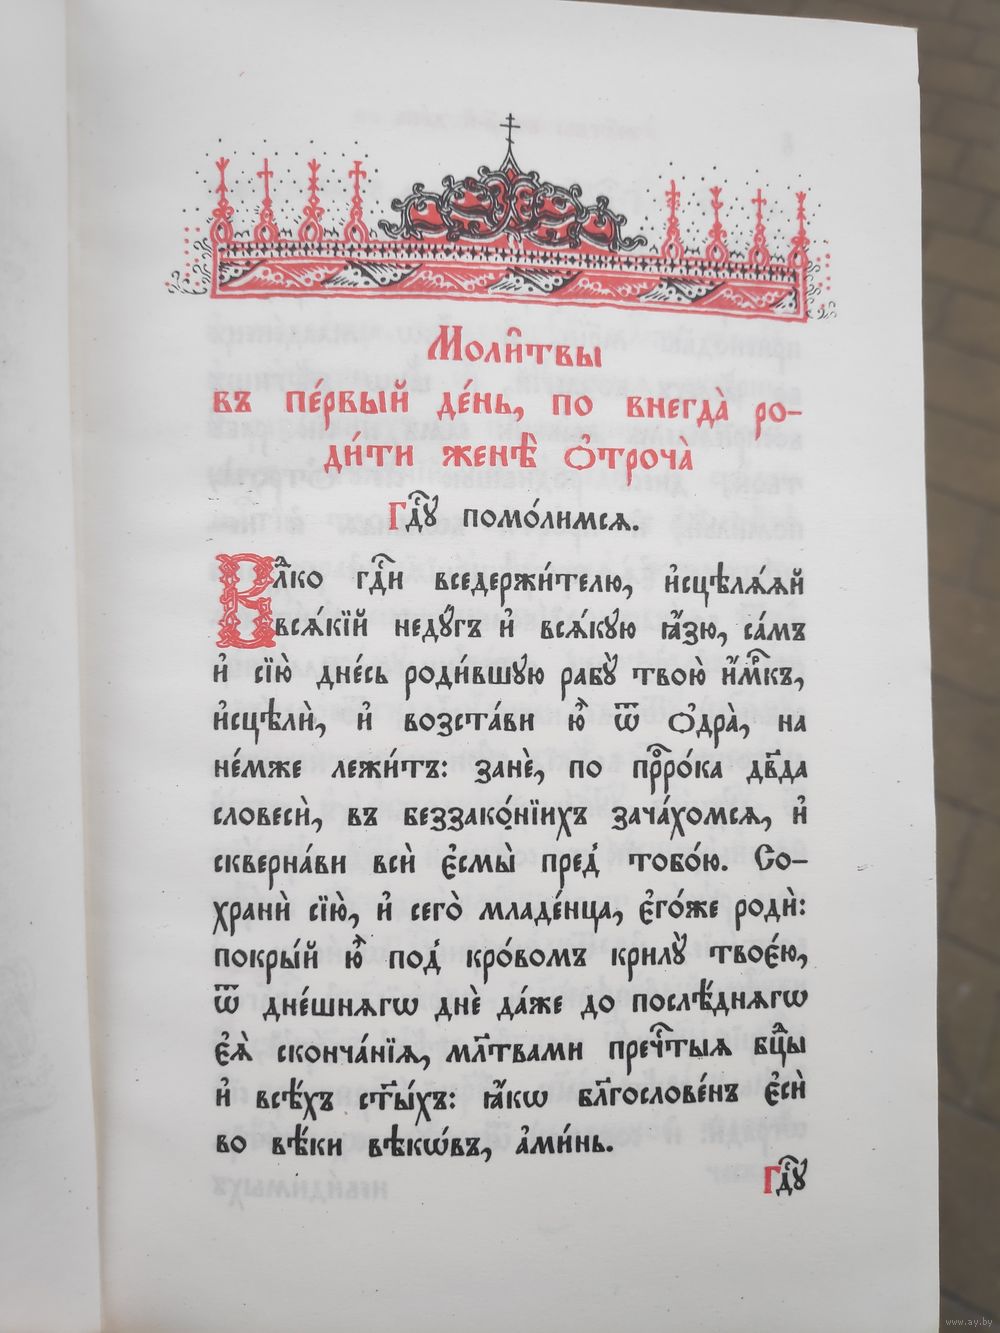 Моли̑твы
въ пе́рвый де́нь, по внегда̀ ро-
ди́ти женѣ̀ ѻ҆троча̀
Гдⷭ҇ꙋ помо́лимсѧ.
Влⷣко гдⷭ҇и вседержи́телю, и҆сцѣлѧ́ѧй
всѧ́кїй недꙋ́гъ и҆ всѧ́кꙋю ꙗ҆́зю, са́мъ
и҆ сїю̀ дне́сь роди́вшꙋю рабꙋ̀ твою̀ и҆́мⷬ҇къ,
и҆сцѣлѝ, и҆ возста́ви ю҆̀ ѿ ѻ҆дра̀, на
не́мже лежи́тъ: занѐ, по прⷪ҇ро́ка дв҃да
словесѝ, въ беззако́нїихъ зача́хомсѧ, и҆
скверна́ви всѝ є҆смы̀ пред̾ тобо́ю. Со-
хранѝ сїю̀, и҆ сего̀ младе́нца, є҆го́же родѝ:
покры́й ю҆̀ под̾ кро́вомъ крилꙋ̀ твоє́ю,
ѿ дне́шнѧгѡ днѐ да́же до послѣ́днѧгѡ
є҆ѧ̀ сконча́нїѧ, мл҃твами пречⷭ҇тыѧ бцⷣы
и҆ всѣ́хъ ст҃ы́хъ: ꙗ҆́кѡ бл҃гослове́нъ є҆сѝ
во вѣ́ки вѣкѡ́въ, а҆ми́нь.
Гдⷭ҇ꙋ
www.ay.by